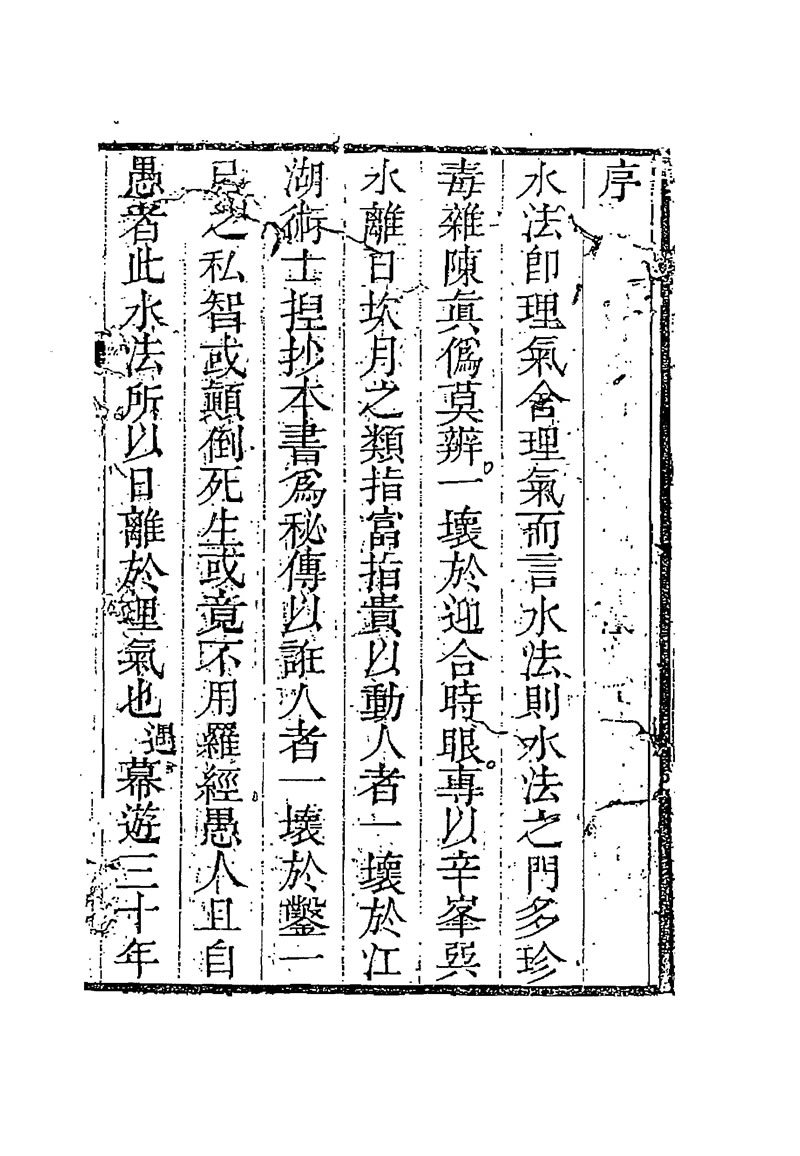 序
水法卽理氣舍理氣而言水法則水法之門多珍
毒雜陳眞僞莫辨。一壞於迎合時眼。專以辛峯巽
水離日坎月之類指富指貴以動人者一壞於江
湖術士揑抄本書爲秘傳以誑人者一壞於鑿一
己之私智或顚倒死生或竟不用羅經愚人且自
愚者此水法所以日離於理氣也遇幕遊三十年